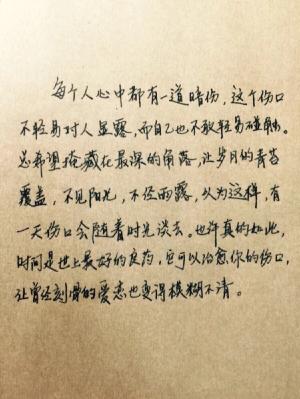 每个人心中都有一道暗伤，这个伤口
不轻易对人显露，而自己也不敢轻易碰触。
总希望掩藏在最深的角落，让岁月的青苔
覆盖，不见阳光，不经雨露，以为这样，有
一天伤口会随着时光淡去。也许真的如此，
时间是世上最好的良药，它可以治愈你的伤口，
让曾经刻骨的爱恋也变得模糊不清。